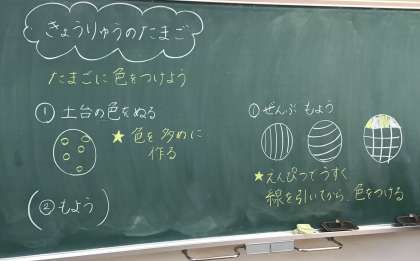 きょうりゅうのたまご
たまごに色をつけよう
① 土台の色をぬる
★ 色を多めに
作る
(② もよう)
① ぜんぶ もよう
★ えんぴつでうすく
線を引いてから、色をつける